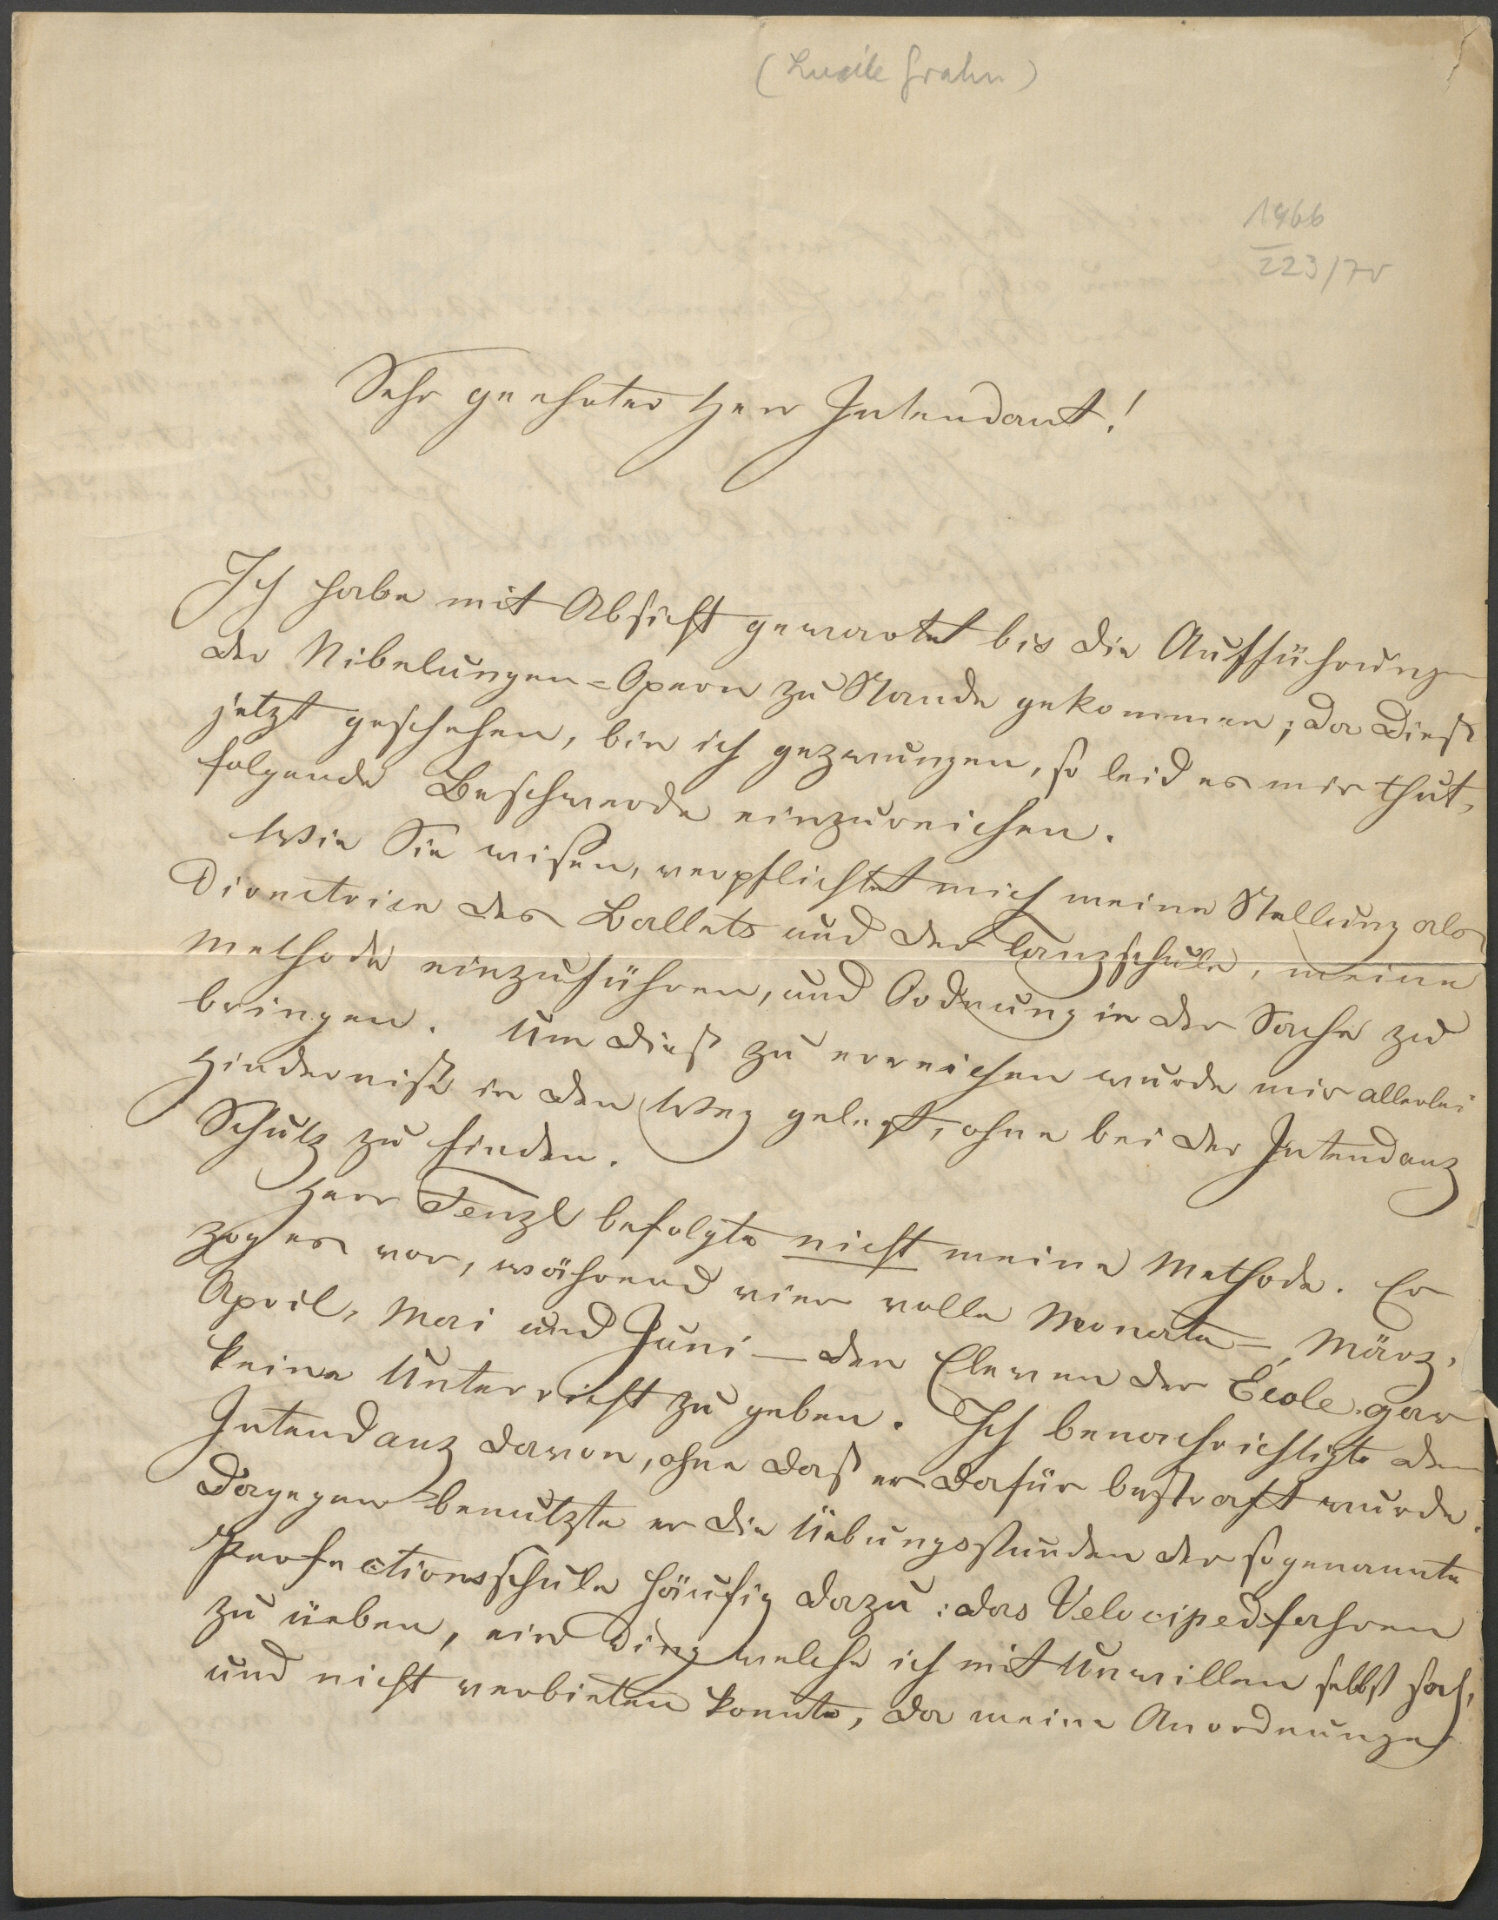 (Lucile Grahn)
1466
223/70
Sehr geehrter Herr Intendant!
Ich habe mit Absicht gewartet bis die Aufführung
der Nibelungen=Opern zu Stande gekommen; da dieß
jetzt geschehen, bin ich gezwungen, so leid es mir thut,
folgende Beschwerde einzureichen.
Wie Sie wißen, verpflichtet mich meine Stellung als
Directrice des Ballets und der Tanzschule, meine
Methode einzuführen, und Ordnung in der Sache zu
bringen. Um dieß zu erreichen wurde mir allerlei
Hinderniße in den Weg gelegt, ohne bei der Intendanz
Schutz zu finden.
Herr Fenzl befolgte nicht meine Methode. Er
zog es vor, während vier volle Monate – März,
April, Mai und Juni – den Eleven der École gar
keine Unterricht zu geben. Ich benachrichtigte den
Intendanz davon, ohne daß er dafür bestraft wurde.
Dagegen benutzte er die Uebungsstunden der sogenannte
Perfectionsschule häufig dazu: das Velocipedfahren
zu üeben, ein Ding welche ich mit Unwillen selbst sah,
und nicht verbieten konnte, da meine Anordnungen